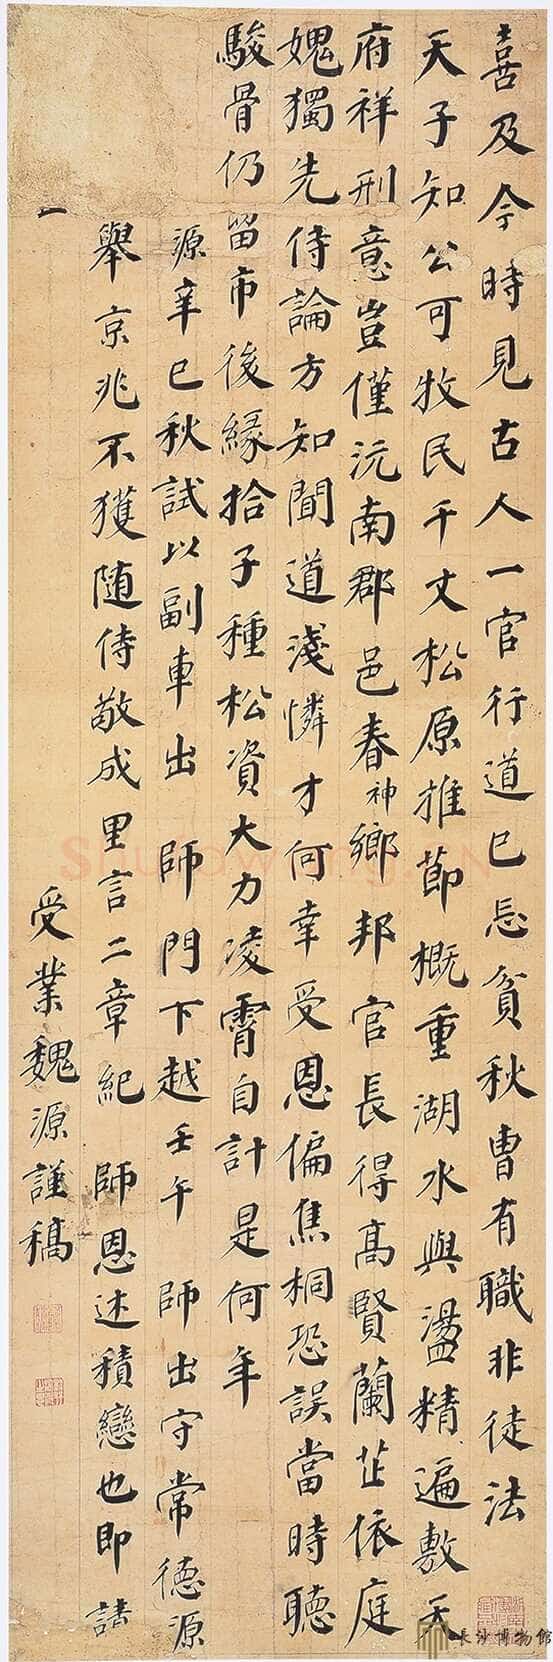 喜及今時見古人一官行道已忘貧秋曹有職非徒法
天子知公可牧民千丈松原推節概重湖水與盪精遍敷天
府祥刑意豈僅沅南郡邑春神鄉邦官長得高賢蘭芷依庭
媿獨先侍論方知聞道淺憐才何幸受恩偏焦桐恐誤當時聽
駿骨仍留市後緣拾子種松資大力凌霄自計是何年
源辛巳秋試以副車出 師門下越壬午 師出守常德源
舉京兆不獲隨侍敬成里言二章紀 師恩述積戀也即請
一
受業魏源謹稿
長沙博物館